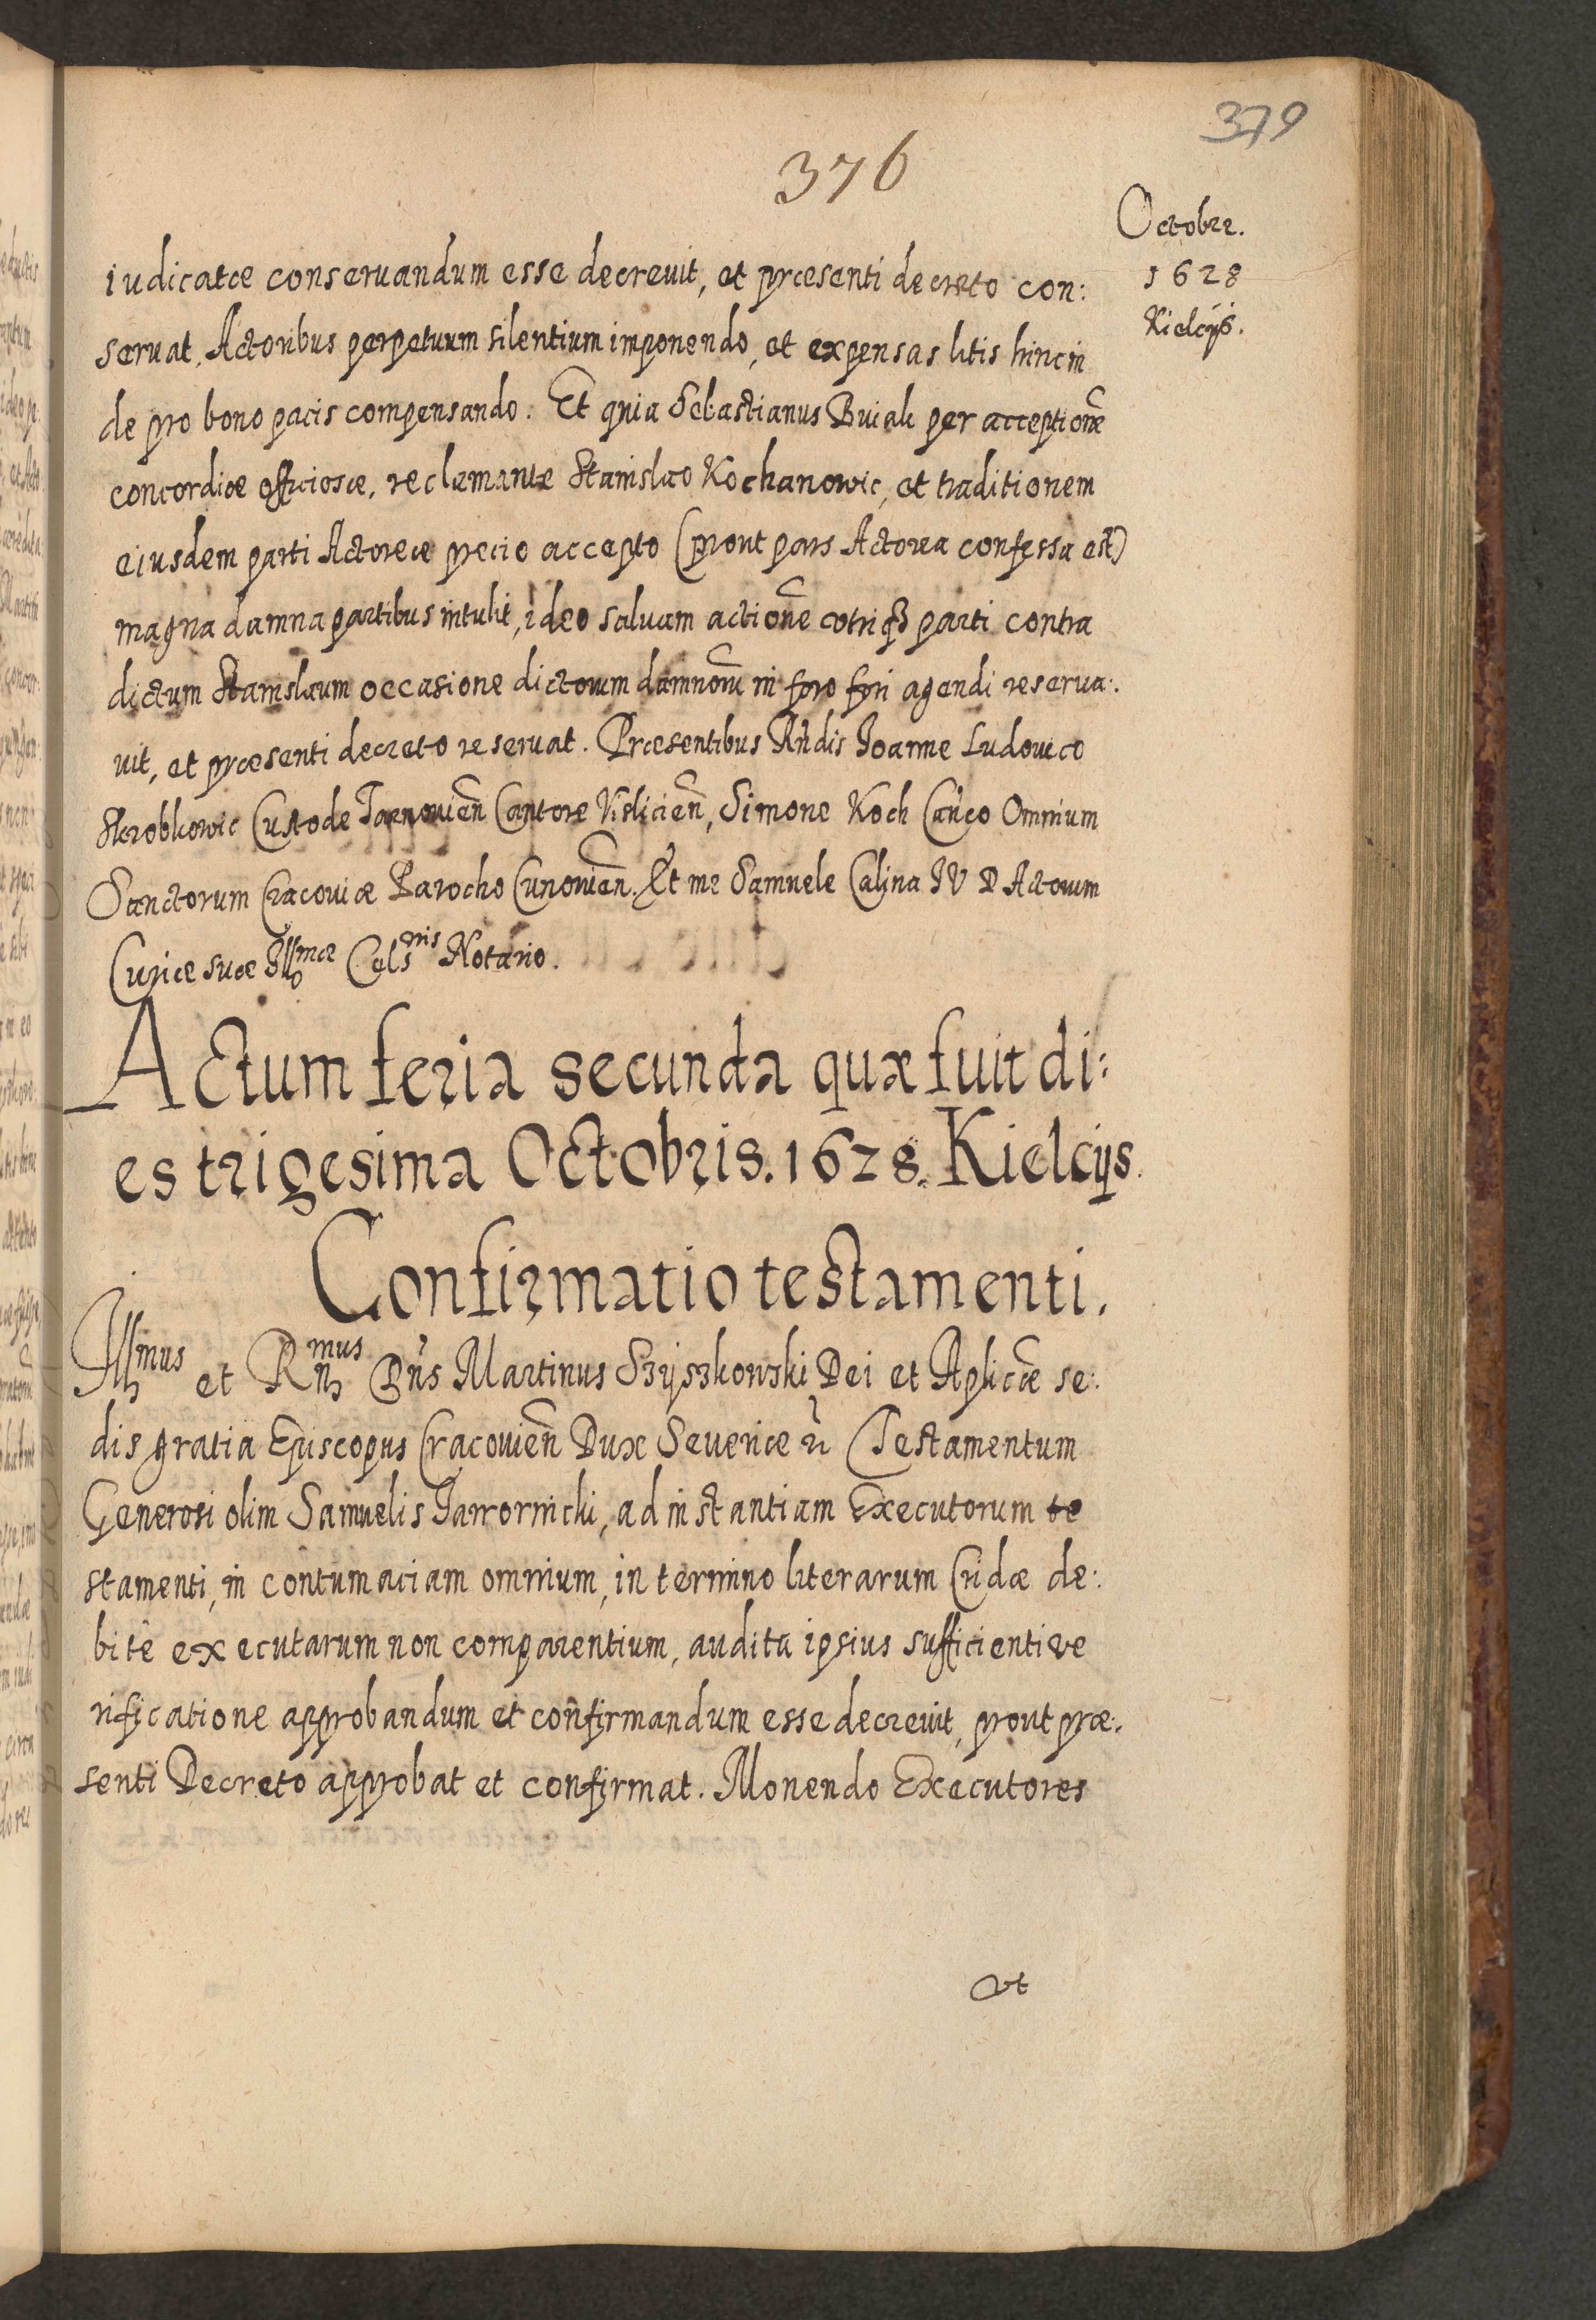 379
376
Octobre.
1628
Kielcijs.
iudicatæ conseruandum esse decreuit, et præsenti decreto con:
seruat, Actoribus perpetuum silentium imponendo, et expensas litis hinc in
de pro bono pacis compensando. Et quia Sebastianus Buiak per acceptionẽ
concordiæ officiosæ, reclamante Stanislao Kochanowic, et traditionem
eiusdem parti Actoreæ precio accepto (prout pars Actorea confessa est)
magna damna partibus intulit, ideo saluam actionẽ utriq3 parti contra
dictum Stanislaum occasione dictorum damnorũ in foro fori agendi reserua:
uit, et præsenti decreto reseruat. Præsentibus Rñdis Joanne Ludouico
Skrobkowic Custode Tarnouieñ Cantore Visliciẽn, Simone Koch Cañco Omnium
Sanctorum Cracouiæ Parocho Cunouieñ. Et me Samuele Calina IV D Actorum
Curiæ suæ Illmæ Cels nis Notario.
Actum feria secunda quæ fuit di:
es trigesima Octobris. 1628. Kielcijs.
Confirmatio testamenti.
Illmus et Rnmus Dñs Martinus Szyszkowski Dei et Aplicæ se:
dis gratia Episcopus Cracouieñ Dux Seueriæ Testamentum
Generosi olim Samuelis Jawornicki, ad instantiam Executorum te
stamenti, in contumaciam omnium, in termino literarum Cridæ de:
bitè executarum non comparentium, audita ipsius sufficienti ve
rificatione approbandum et confirmandum esse decreuit, prout præ:
senti Decreto approbat et confirmat. Monendo Executores
vt